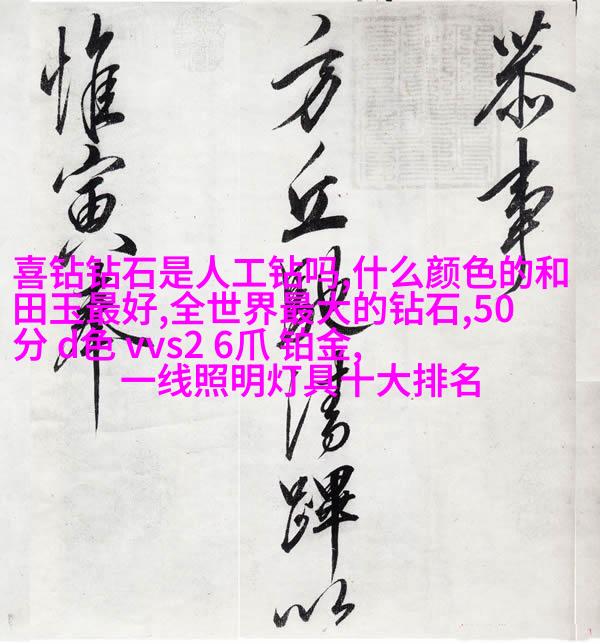 恭事
方丘清蹕以
惟寅奉
喜钻钻石是人工钻吗,什么颜色的和
田玉最好,全世界最大的钻石,50
分 d色 vvs2 6爪 铂金,
一线照明灯具十大排名